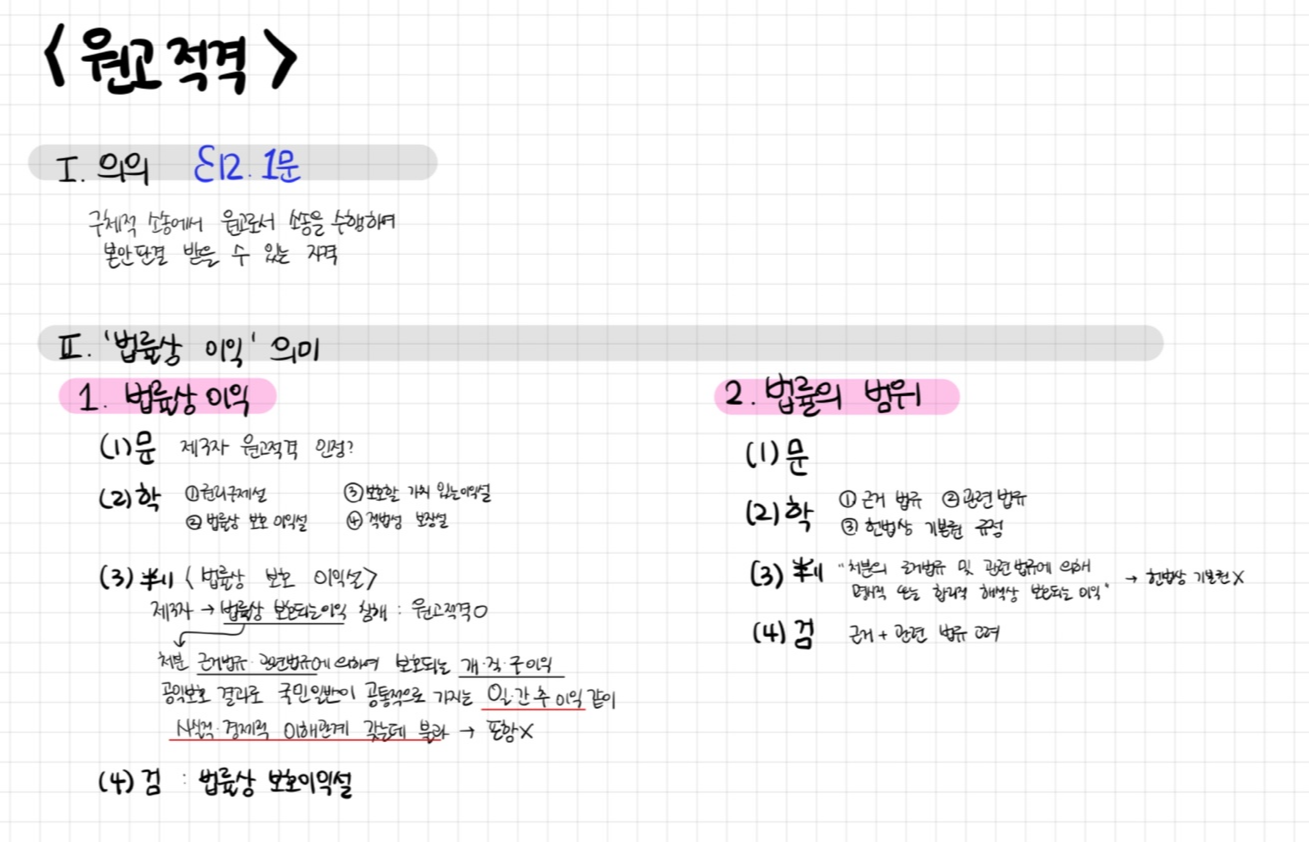 <원고적격>
I. 의의 §12. 1문
구체적 소송에서 원고로서 소송을 수행하여
본안판결 받을 수 있는 자격
II. '법률상 이익' 의미
1. 법률상 이익
(1) 문 제3자 원고적격 인정?
(2) 학 ①권리구제설 ③보호할 가치 있는이익설
②법률상 보호 이익설 ④적법성 보장설
(3) 判 <법률상 보호 이익설>
제3자 → 법률상 보호되는이익 침해 : 원고적격O
처분 근거법규·관련법규에 의하여 보호되는 개·직·구이익
공익보호 결과로 국민일반이 공통적으로 가지는 일·간·추 이익 같이
사실적·경제적 이해관계 갖는데 불과 → 포함X
(4) 검 : 법률상 보호이익설
2. 법률의 범위
(1) 문
(2) 학 ① 근거 법규 ②관련법규
③ 헌법상 기본권 규정
(3) 判 "처분의 근거법규 및 관련법규에 의해
명시적 또는 합리적 해석상 보호되는 이익" → 헌법상 기본권X
(4) 검 근거 + 관련 법규 고려